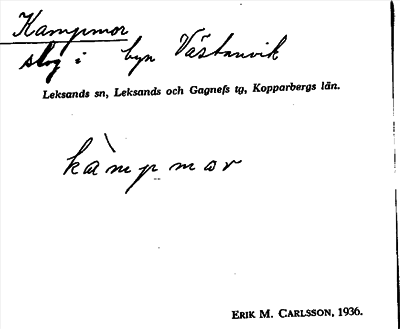 Kampmor
slog i byn Västanvik
Leksands sn, Leksands och Gagnefs tg, Kopparbergs län.
kàmpmor
ERIK M. CARLSSON, 1936.